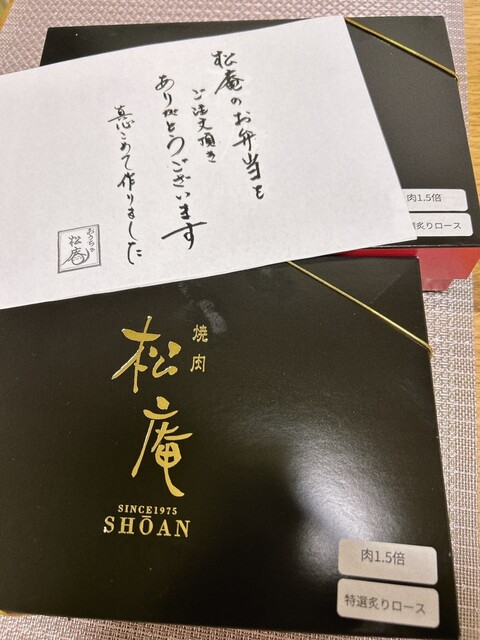 松庵のお弁当を
ご注文頂き
ありがとうございます
真心こめて作りました
おうちで
松庵
肉1.5倍
特選炙りロース
焼肉
松庵
SINCE1975
SHŌAN
肉1.5倍
特選炙りロース